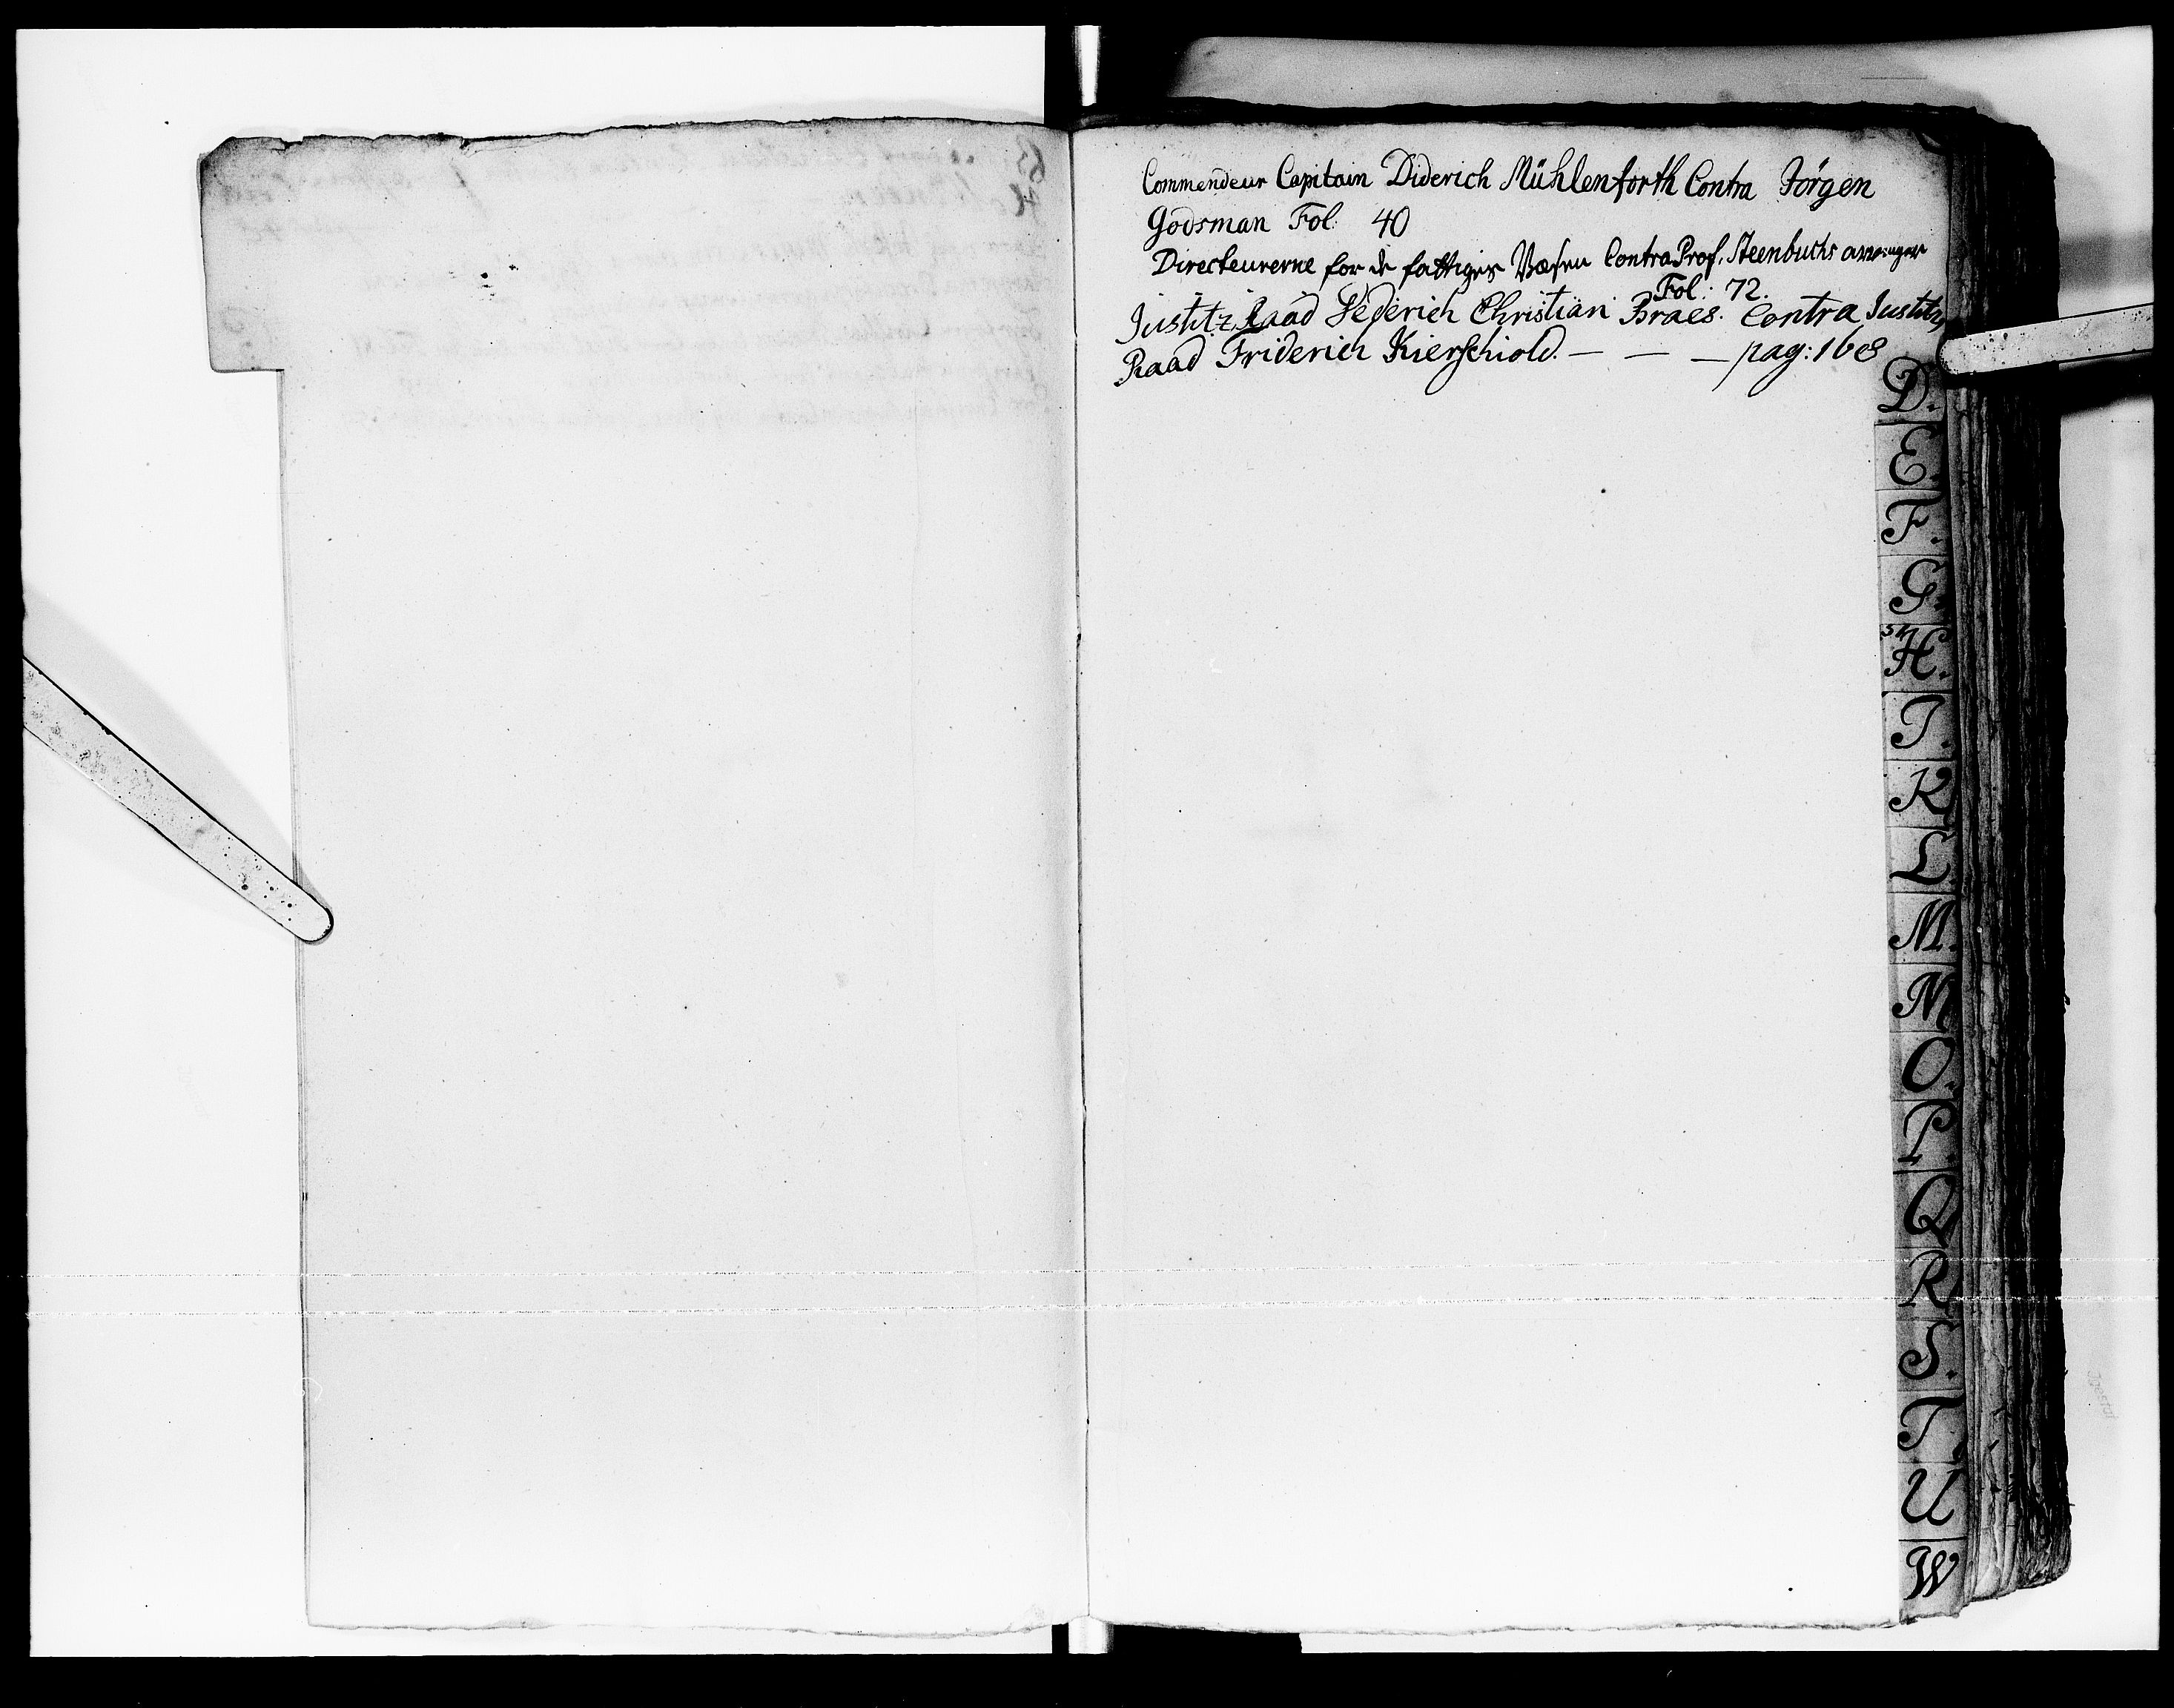 Commendeur Capitain Diderich Mühlenforth Contra Jörgen
Godsman Fol: 40
Directeurerne for de fattiges Væsen Contra Prof. Steenbuchs arvinger
Fol: 72.
Justitz Raad Federich Christian Braes. Contra Justitz
Raad Friderich Kierschiold. — — — pag: 168
D.
E.
F.
G.
H.
I.
K
L
M.
O.
P.
Q
R
S.
T.
U
W